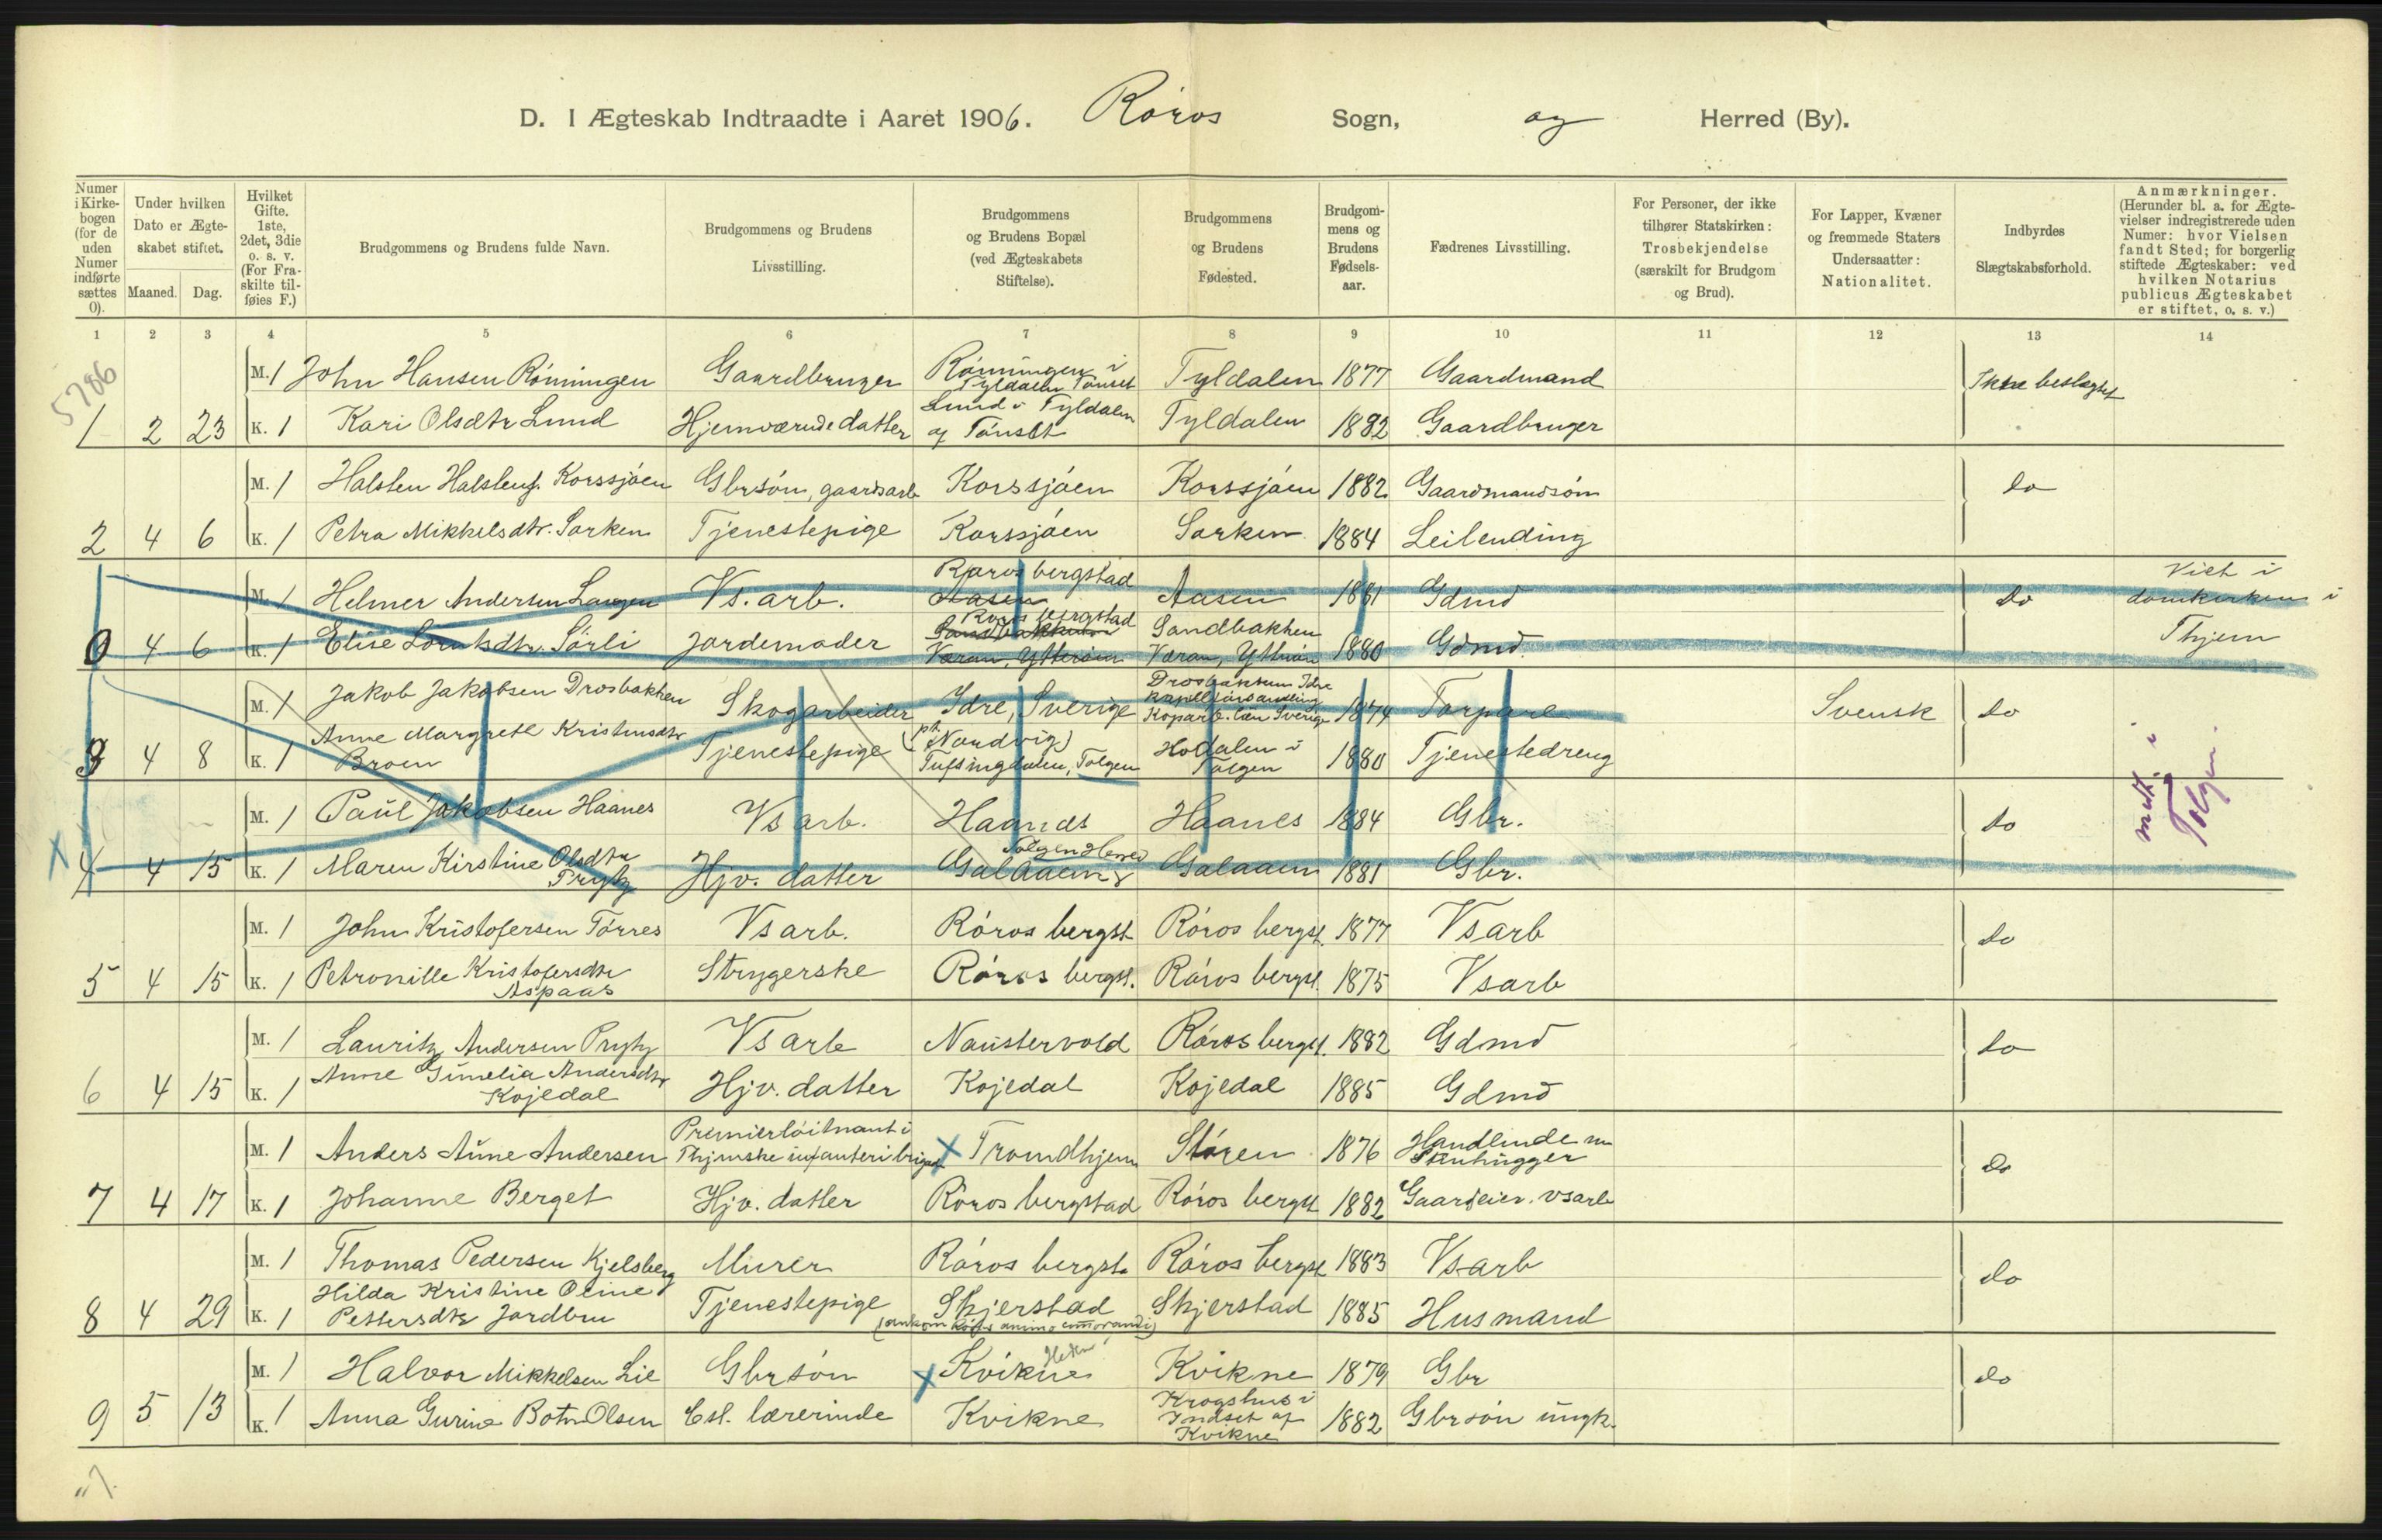 D. I Ægteskab Indtraadte i Aaret 1906. Röros Sogn, og Herred (By).
Numer i Kirkebogen (for de uden Numer indførte sættes 0).
Under hvilken Dato er Ægteskabet stiftet.
Maaned. Dag.
Hvilket Gifte. 1ste, 2det, 3die o. s. v. (For Fraskilte tilføies F.)
Brudgommens og Brudens fulde Navn.
Brudgommens og Brudens Livsstilling.
Brudgommens og Brudens Bopæl (ved Ægteskabets Stiftelse).
Brudgommens og Brudens Fødested.
Brudgommens og Brudens Fødselsaar.
Fædrenes Livsstilling.
For Personer, der ikke tilhører Statskirken: Trosbekjendelse (særskilt for Brudgom og Brud).
For Lapper, Kvæner og fremmede Staters Undersaatter: Nationalitet.
Indbyrdes Slægtskabsforhold.
Anmærkninger. (Herunder bl. a. for Ægtevielser indregistrerede uden Numer: hvor Vielsen fandt Sted; for borgerlig stiftede Ægteskaber: ved hvilken Notarius publicus Ægteskabet er stiftet, o. s. v.)
1 2 3 4 5 6 7 8 9 10 11 12 13 14
5786
M. 1 John Hansen Rönningen Gaardbruger Rönningen i Tyldalen Tönset Tyldalen 1877 Gaardmand Ikke beslægtet
1 2 23 K. 1 Kari Olsdtr Lund Hjemværende datter Lund i Tyldalen af Tönset Tyldalen 1882 Gaardbruger
M. 1 Halsten Halstens. Korssjöen Gbrsön, gaardsarb Korssjöen Korssjöen 1882 Gaardmandsön do
2 4 6 K. 1 Petra Mikkelsdtr. Sorken Tjenestepige Korssjöen Sorken 1884 Leilending
M. 1 Helmer Andersen Langen Vs. arb. Röros bergstad Aasen Aasen 1881 Gdmd do Viet i domkirken i
0 4 6 K. 1 Elise Lorntsdtr. Sörli jordemoder Röros bergstad Sandbakken Væran, Ytterøen Sandbakken Væran, Ytterøen 1880 Gdmd Thjem
M. 1 Jakob Jakobsen Drosbakken Skogarbeider Idre, Sverige Drosbakken Idre kapellförsamling Koparb. län Sverige 1874 Torpare Svensk do
3 4 8 K. 1 Anne Margrete Kristensdtr Broen Tjenestepige (pt. Nordvig) Tufsingdalen, Tolgen Hodalen i Tolgen 1880 Tjenestedreng
M. 1 Paul Jakobsen Haanes Vs arb. Haanes Haanes 1884 Gbr. do
medt. i Tolgen.
4 4 15 K. 1 Maren Kirstine Olsdtr Prytz Hjv. datter Tolgen Herred Galaaen Galaaen 1881 Gbr.
M. 1 John Kristofersen Törres Vs arb. Röros bergst. Röros bergst. 1877 Vsarb do
5 4 15 K. 1 Petronille Kristofersdtr Aspaas Strygerske Röros bergst. Röros bergst. 1875 Vsarb
M. 1 Lauritz Andersen Prytz Vs arb Naustervold Röros bergst. 1882 Gdmd do
6 4 15 K. 1 Anne Gunelia Andersdtr Kojedal Hjv. datter Kojedal Kojedal 1885 Gdmd
M. 1 Anders Aune Andersen Premierlöitnant i Thjemske infanteribrigade Trondhjem Stören 1876 Handlende nu Stenhugger do
7 4 17 K. 1 Johanne Berget Hjv. datter Röros bergstad Röros bergst 1882 Gaardeier. vsarb
M. 1 Thomas Pedersen Kjelsberg Murer Röros bergst. Röros bergst 1883 Vs-arb do
8 4 29 K. 1 Hilda Kristine Oline Pettersdtr Jordbru Tjenestepige Skjerstad Skjerstad 1885 Husmand
M. 1 Halvor Mikkelsen Lie Gbrsön Kvikne Kvikne 1879 Gbr do
9 5 13 K. 1 Anna Gurine Botn Olsen Est. lærerinde Kvikne Krogshus i Indset af Kvikne 1882 Gbrsön ungk.